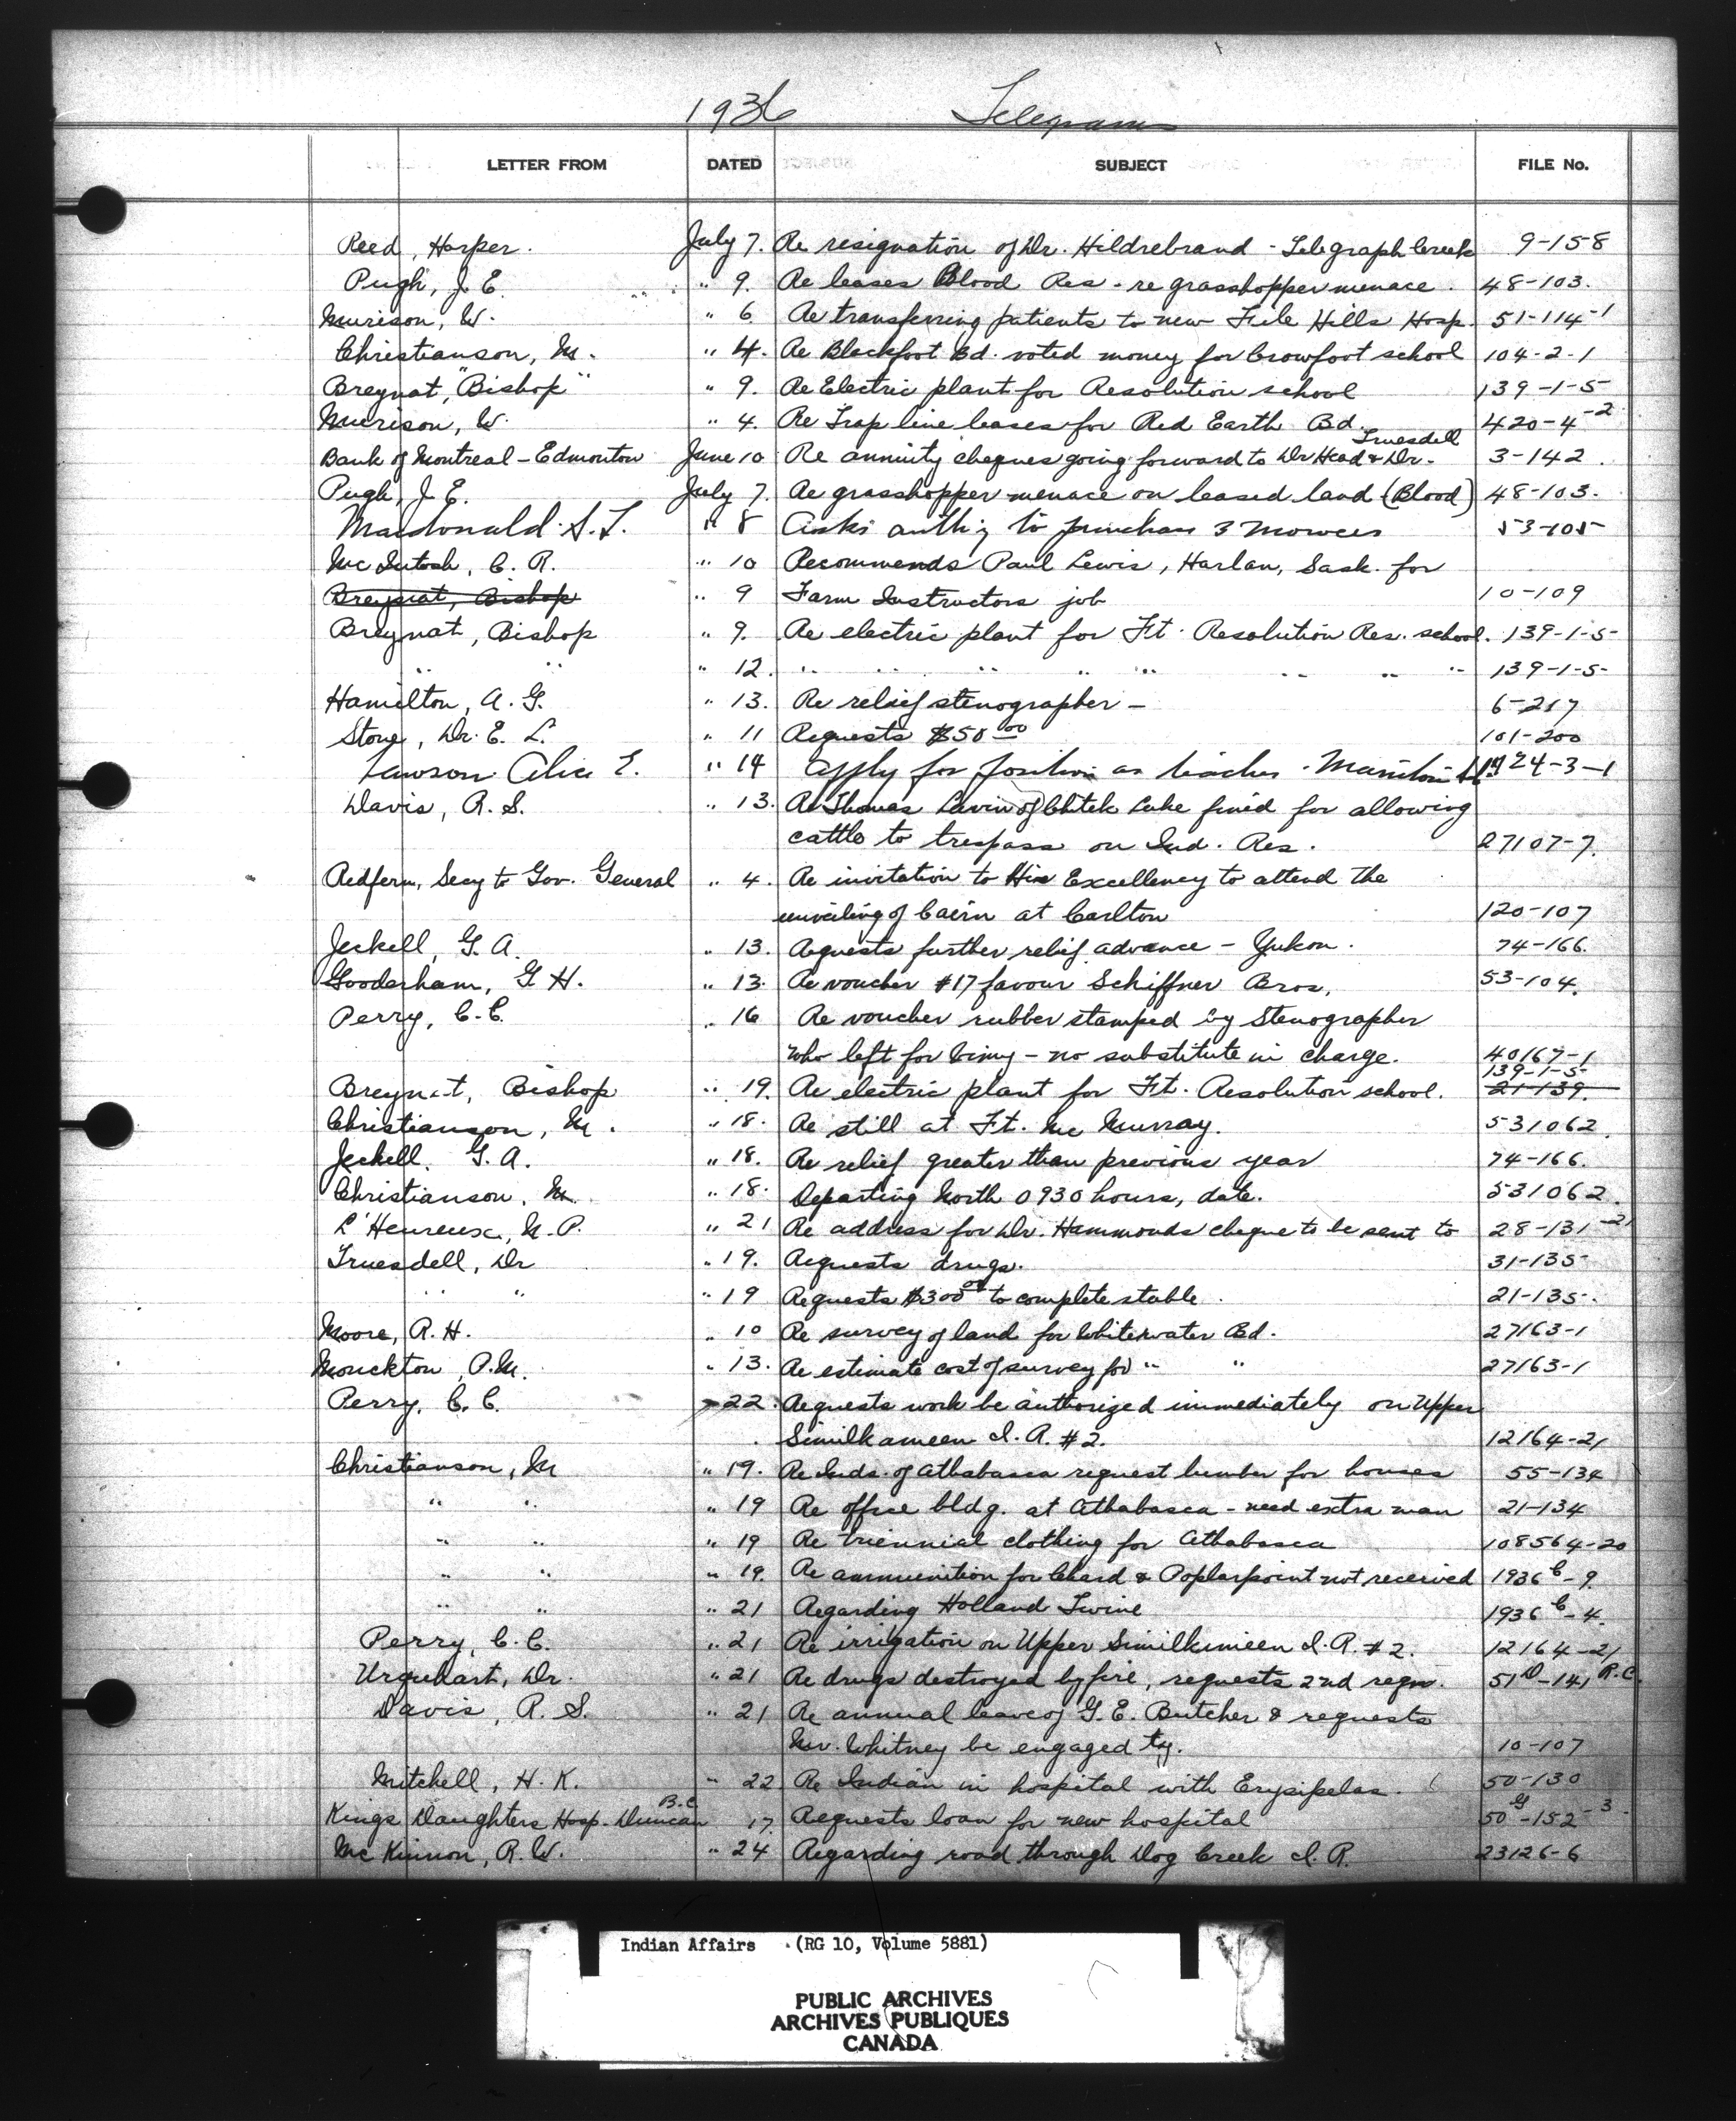 1936 Telegrams
LETTER FROM DATED SUBJECT FILE No.
Reed, Harper. July 7. Re resignation of Dr. Hildrebrand - Telegraph Creek 9-158
Pugh, J. E. " 9. Re leases Blood Res - re grasshopper menace. 48-103.
Murison, W. " 6. Re transferring patients to new File Hills Hosp. 51-114-1
Christianson, M. " 4. Re Blackfoot Bd. voted money for Crowfoot school 104-2-1
Breynat, "Bishop" " 9. Re Electric plant for Resolution school 139-1-5
Murison, W. " 4. Re Trap line leases for Red Earth Bd. 420-4-2
Bank of Montreal - Edmonton June 10 Re annuity cheques going forward to Dr Head & Dr. Truesdell 3-142.
Pugh, J. E. July 7. Re grasshopper menace on leased land (Blood) 48-103.
Macdonald S. L. " 8 Asks auth'y to purchase 3 mowers 53-105
McIntosh, C. R. " 10 Recommends Paul Lewis, Harlan, Sask. for
Breynat, Bishop " 9 Farm Instructors job 10-109
Breynat, Bishop " 9. Re electric plant for Ft. Resolution Res. school. 139-1-5-
" " " 12. " " " " " " " " 139-1-5-
Hamilton, A. G. " 13. Re relief stenographer - 6-217
Stone, Dr. E. L. " 11 Requests $50 00 101-200
Lawson Alice E. " 14 Apply for position as teacher - 424-3-1
Davis, R. S. " 13. Re Thomas Lavin of Chitek Lake fined for allowing
cattle to trespass on Ind. Res. 27107-7.
Redfern, Secy to Gov. General " 4. Re invitation to His Excellency to attend the
unveiling of Cairn at Carlton 120-107
Jeckell, G. A. " 13. Requests further relief advance - Yukon. 74-166.
Gooderham, G. H. " 13. Re voucher #17 favour Schiffner Bros, 53-104.
Perry, C. C. " 16 Re voucher rubber stamped by Stenographer
who left for Vimy - no substitute in charge. 40167-1
139-1-5-
Breynat, Bishop " 19. Re electric plant for Ft. Resolution school. 21-139.
Christianson, M. " 18. Re still at Ft. Mc Murray. 531062.
Jeckell. G. A. " 18. Re relief greater than previous year 74-166.
Christianson, M. " 18. Departing North 0930 hours, date. 531062.
L'Heureux, N. P. " 21 Re address for Dr. Hammonds cheque to be sent to 28-131-21
Truesdell, Dr " 19. Requests drugs. 31-135-
" " " 19 Requests $300 00 to complete stable. 21-135-.
Moore, R. H. " 10 Re survey of land for Whitewater Bd. 27163-1
Monckton, P. M. " 13. Re estimate cost of survey for " " 27163-1
Perry, C. C. " 22. Requests work be authorized immediately on Upper
Similkameen I. R. #2. 12164-21
Christianson, M " 19. Re Inds. of Athabasca request lumber for houses 55-134
" " " 19 Re office bldg. at Athabasca - need extra man 21-134
" " " 19 Re triennial clothing for Athabasca 108564-20
" " " 19. Re ammunition for Chard & Poplarpoint not received 1936 C-9.
" " " 21 Regarding Holland Twine 1936 C-4.
Perry, C. C. " 21 Re irrigation on Upper Similkimeen I. R. #2. 12164-21
Urquhart, Dr. " 21 Re drugs destroyed by fire, requests 2nd reqn. 51 D-141 R.C.
Davis, R. S. " 21 Re annual leave of G. E. Butcher & requests
Mr. Whitney be engaged ty. 10-107
Mitchell, H. K. " 22 Re Indian in hospital with Erysipelas. 50-130
Kings Daughters Hosp. Duncan B.C. 17. Requests loan for new hospital 50 G-152-3-
McKinnon, R. W. " 24 Regarding road through Dog Creek I. R. 23126-6
Indian Affairs (RG 10, Volume 5881)
PUBLIC ARCHIVES
ARCHIVES PUBLIQUES
CANADA